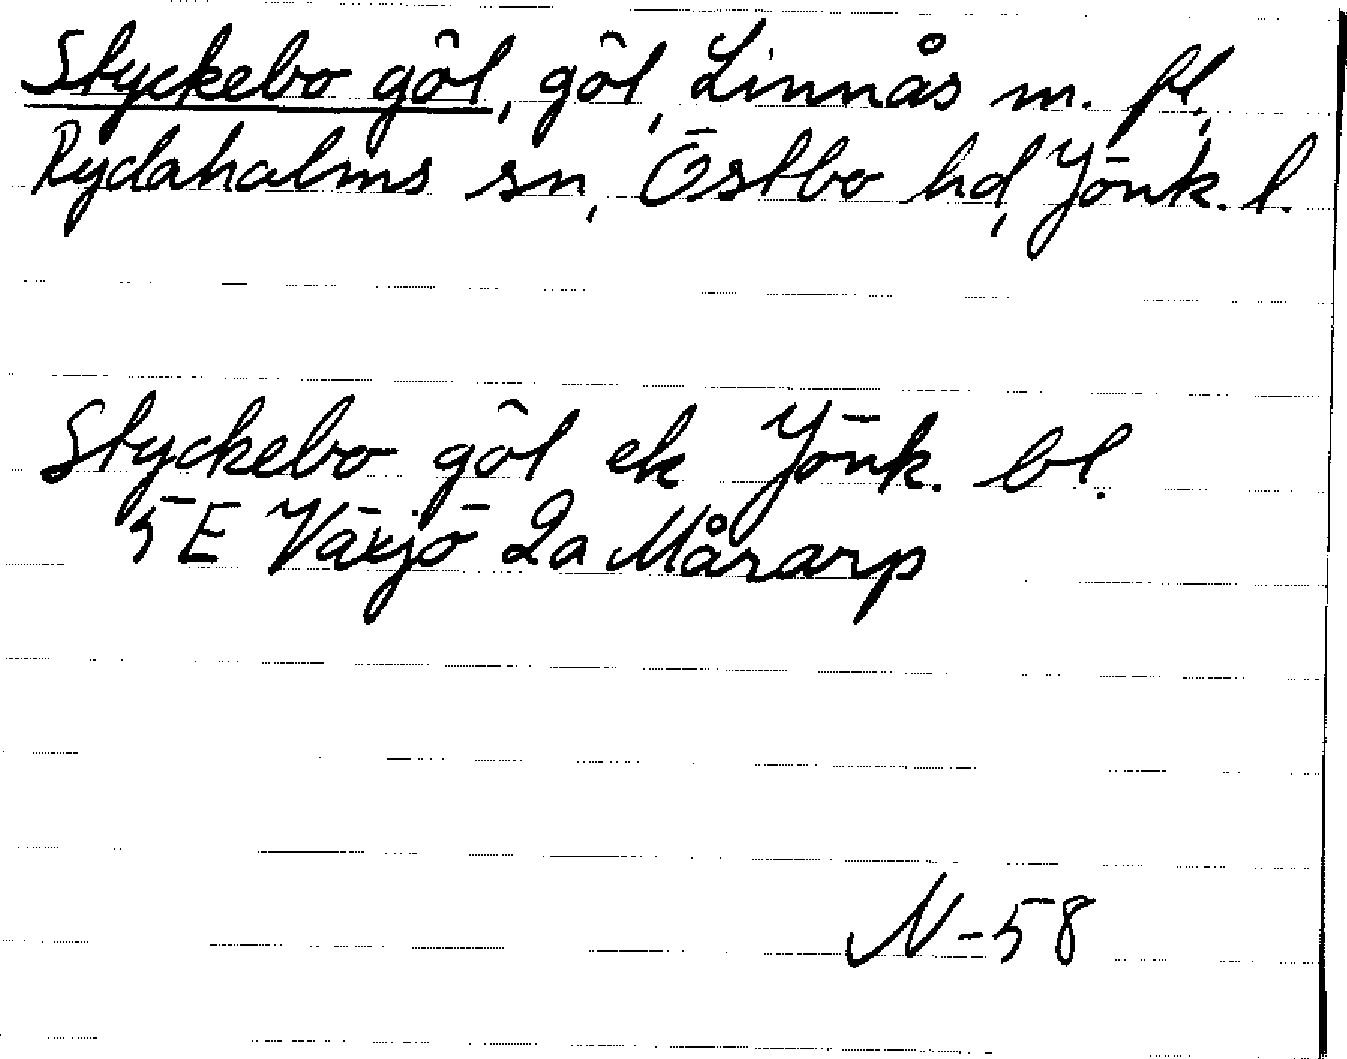 Styckebo göl, göl, Linnås m. fl.,
Rydaholms sn, Östbo hd, Jönk. l.
Styckebo göl ek Jönk. bl.
5E Växjö 2a Målarp
N-58